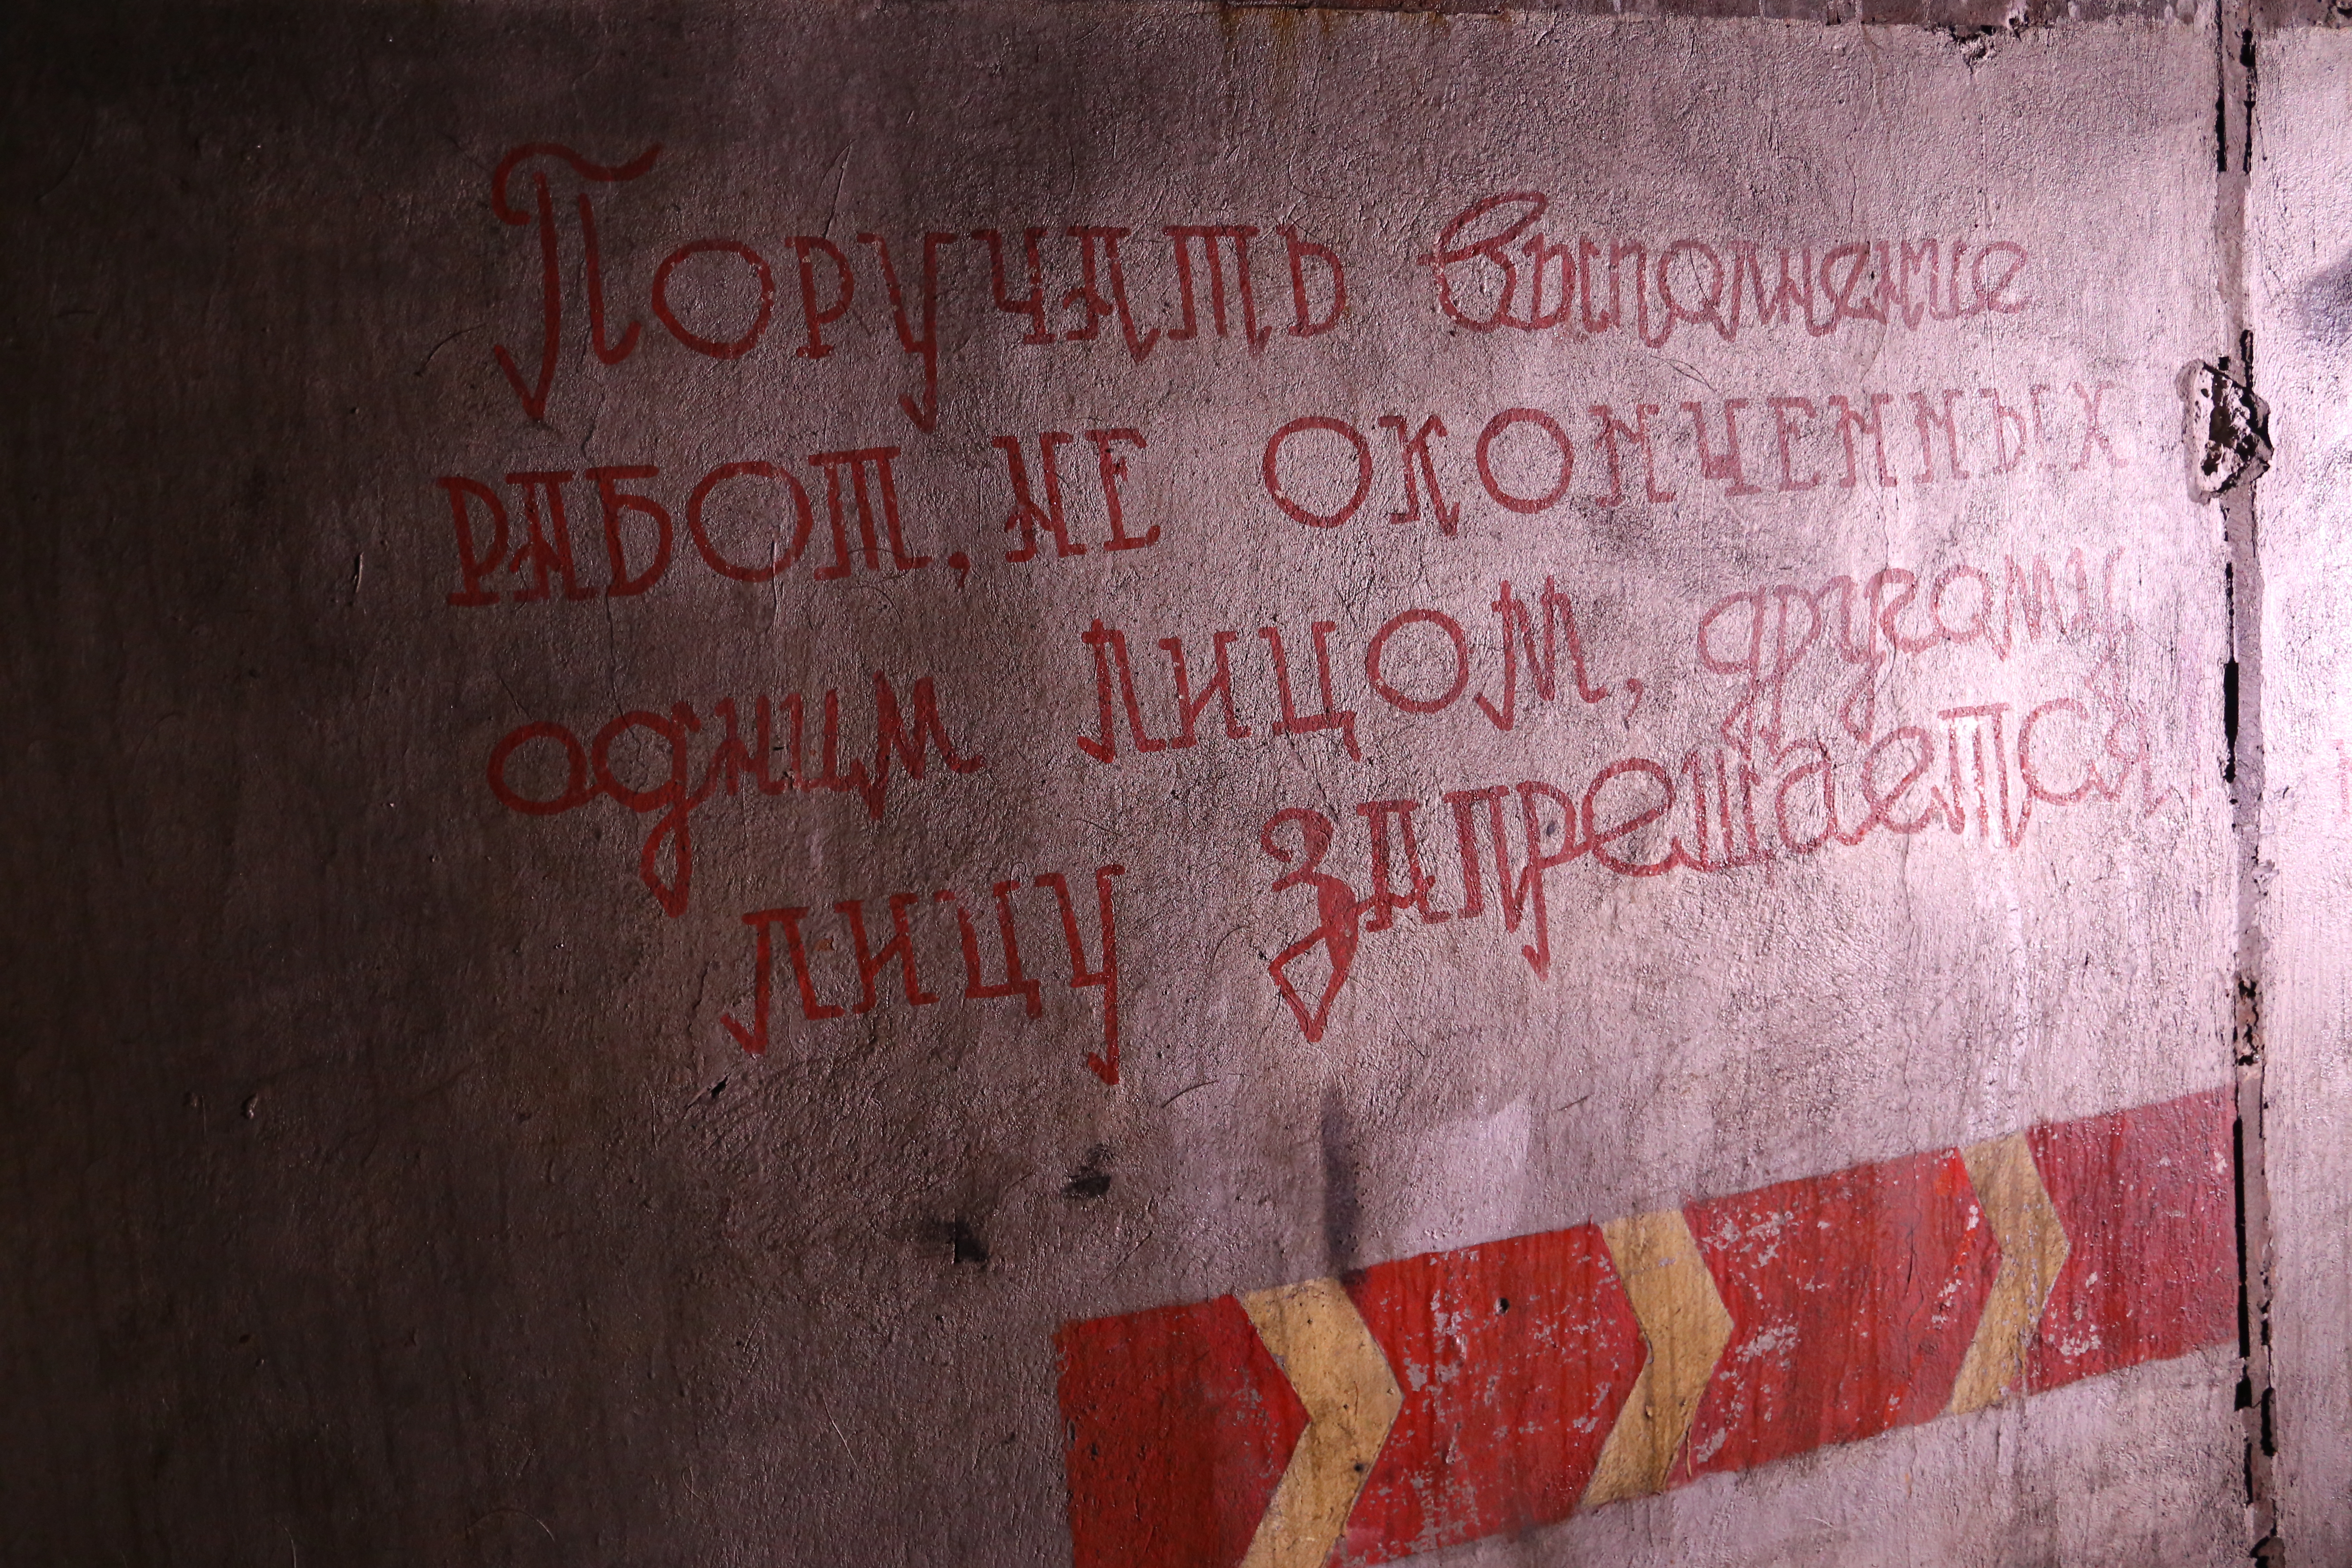 Поручать выполнение
работ, не оконченных
одним лицом, другому
лицу запрещается